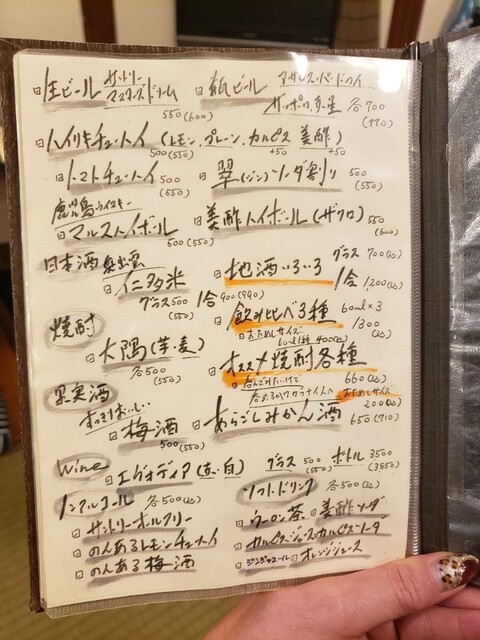 生ビール サントリー マスターズドリーム 550(600)
瓶ビール アサヒスーパードライ
サッポロ赤星 各700 (770)
ハイリキチューハイ (レモン、プレーン、カルピス、美酢)
500(550) +50 +50
トマトチューハイ 500 (550)
翠(ジン)ソーダ割り 500 (550)
鹿児島ウイスキー
マルスハイボール 500(550)
美酢ハイボール(ザクロ) 550 (600)
日本酒 奥出雲
仁多米
グラス500 (550) 1合900(990)
地酒いろいろ グラス700(込) 1合1200(込)
飲み比べ3種 60ml×3 1300(込)
おためしサイズ 60ml1種400(込)
焼酎
大隅(芋・麦) 各500 (550)
オススメ焼酎各種 660(込)
おためしサイズ 200(込)
果実酒
すっきりおいしい
梅酒 500(550)
あらごしみかん酒 650(710)
Wine
エヴォディア(赤・白) グラス500 (550) ボトル3500 (3850)
ノンアルコール 各500(込)
サントリーオールフリー
のんあるレモンチューハイ
のんある梅酒
ソフトドリンク 各500(込)
ウーロン茶 美酢ソーダ
カルピスジュース・カルピスソーダ
ジンジャエール オレンジジュース